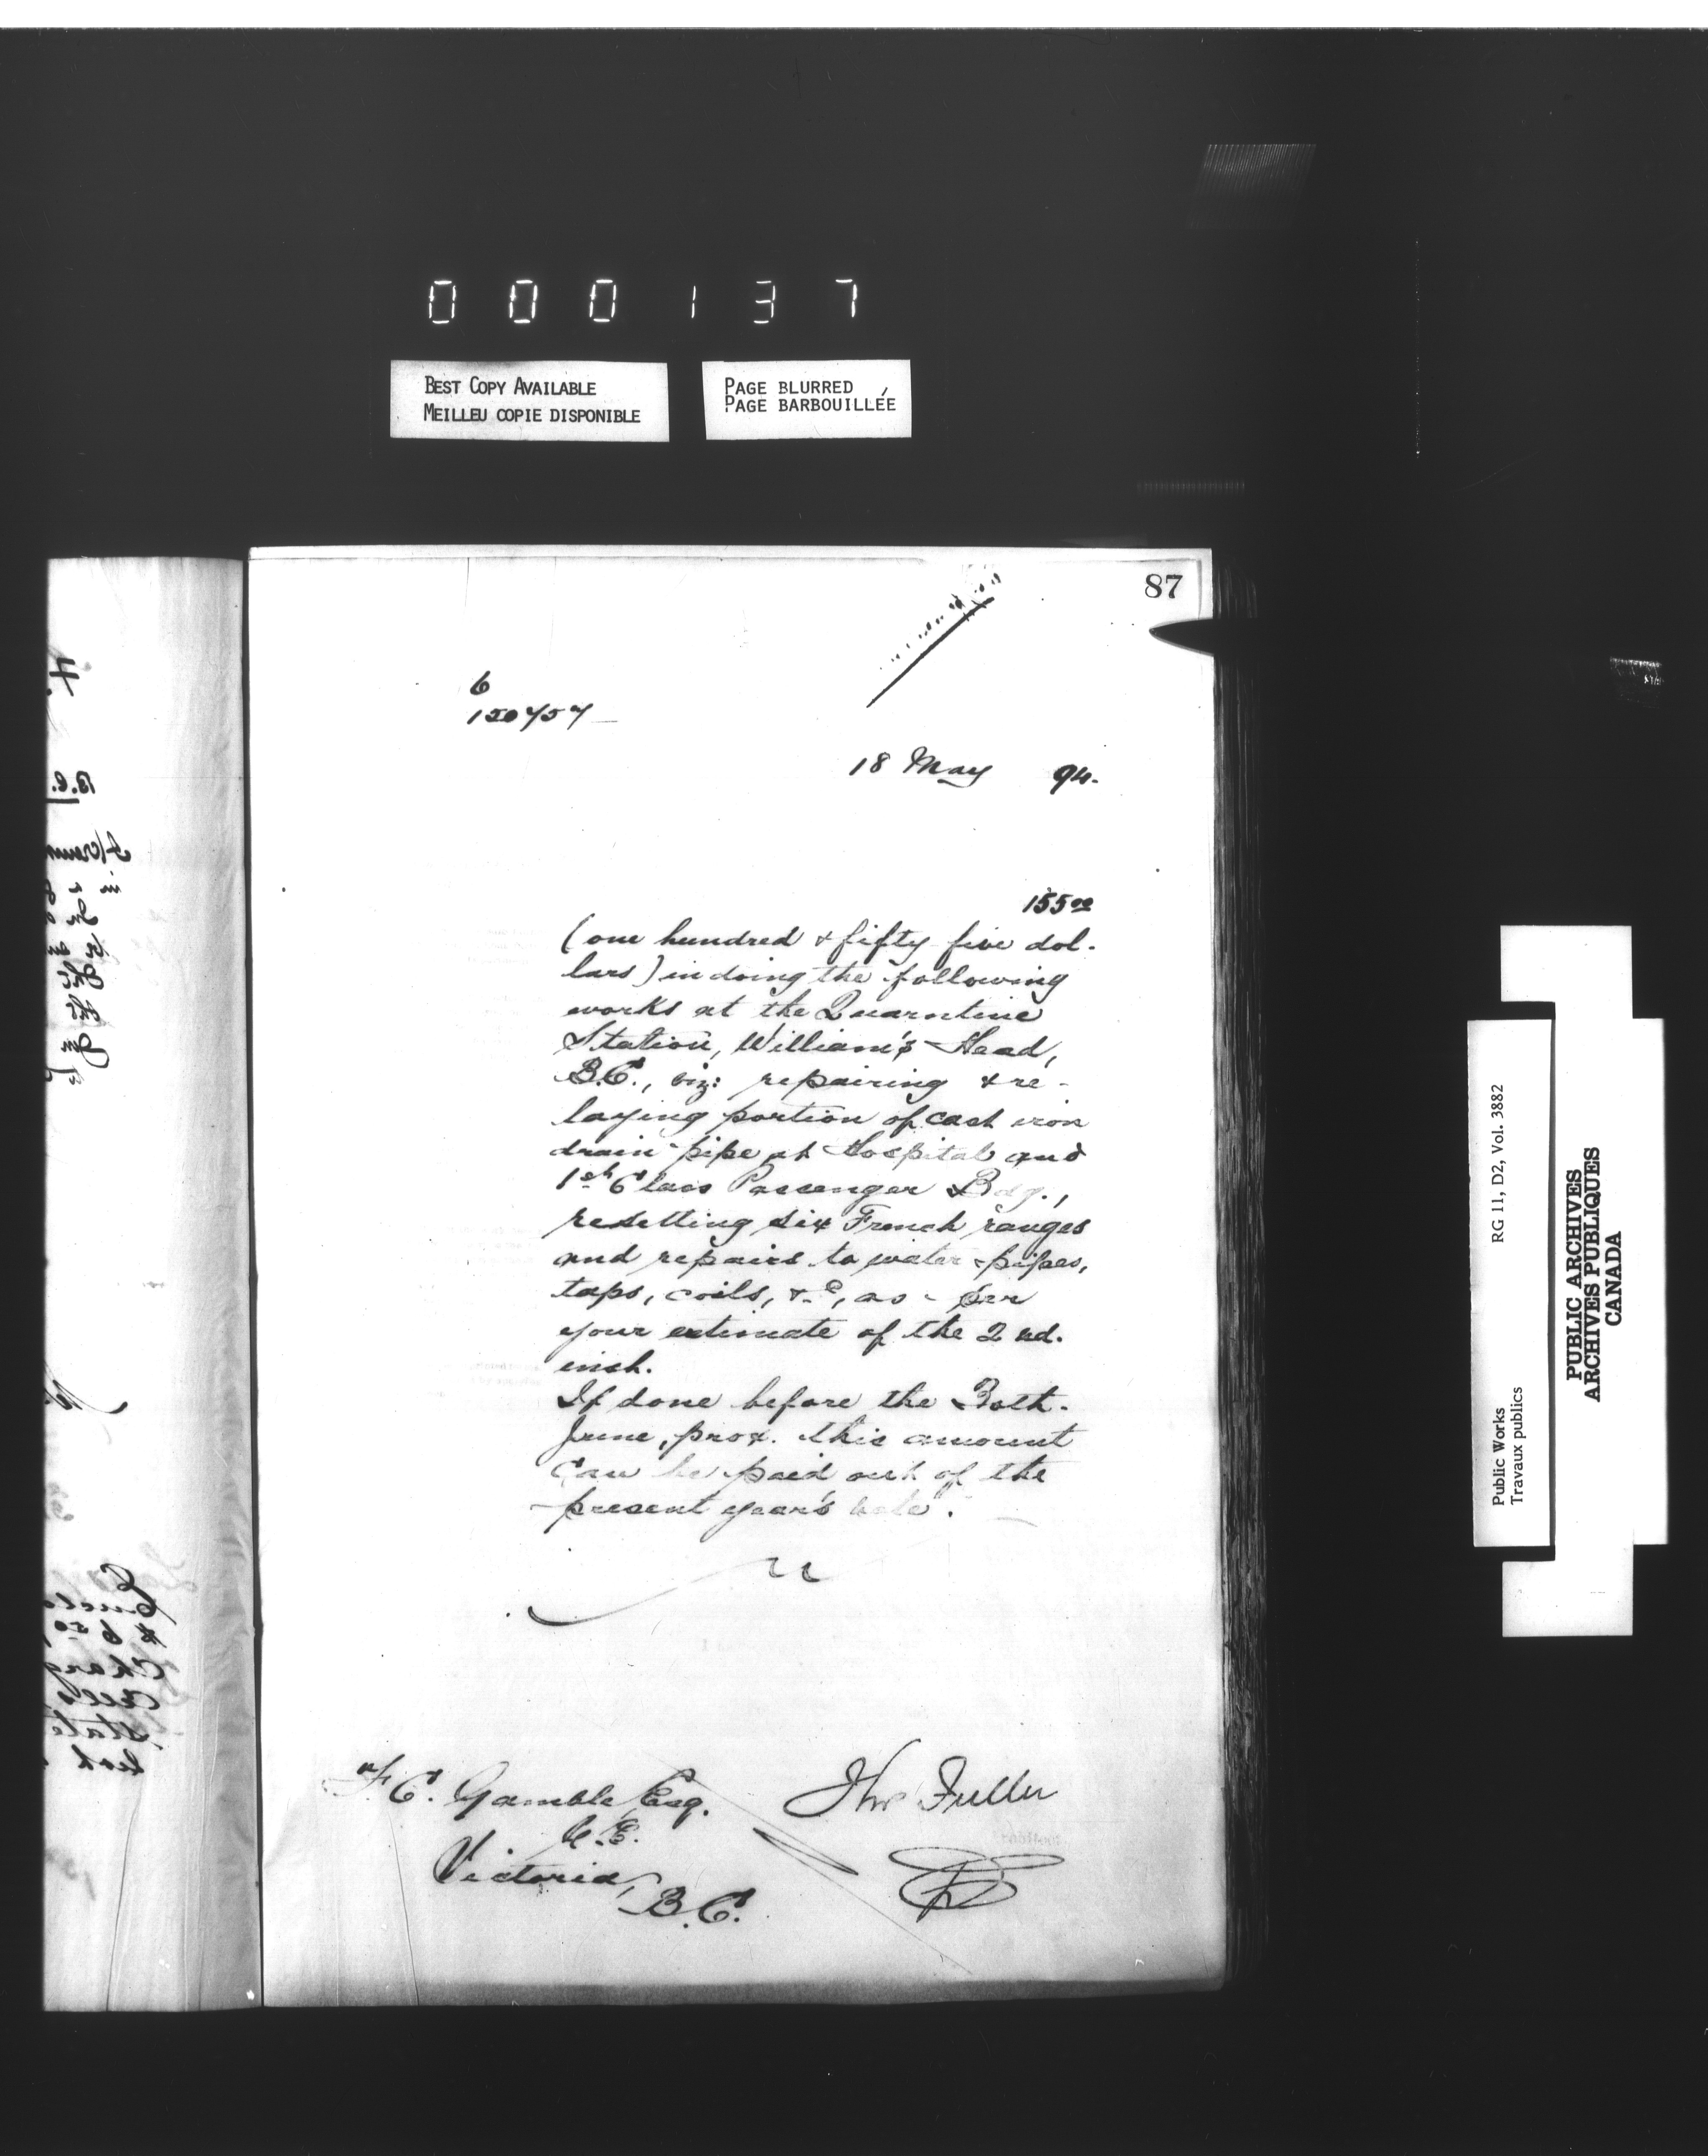 000137
BEST COPY AVAILABLE
MEILLEU COPIE DISPONIBLE
PAGE BLURRED
PAGE BARBOUILLÉE
87
6
150757
18 May 94.
155 00
(one hundred & fifty five dol-
lars) in doing the following
works at the Quarntine
Station, William's Head,
B.C., viz: repairing & re-
laying portion of cast iron
drain pipe at Hospital and
1st Class Passenger Bdg.,
resetting six French ranges
and repairs to water pipes,
taps, coils, &c, as per
your estimate of the 2nd.
inst.
If done before the 30th.
June, prox. this amount
can be paid out of the
present year's vote.
F C. Gamble, Esq.
C.E.
Victoria,
B.C.
Thos Fuller
Public Works
Travaux publics
RG 11, D2, Vol. 3882
PUBLIC ARCHIVES
ARCHIVES PUBLIQUES
CANADA